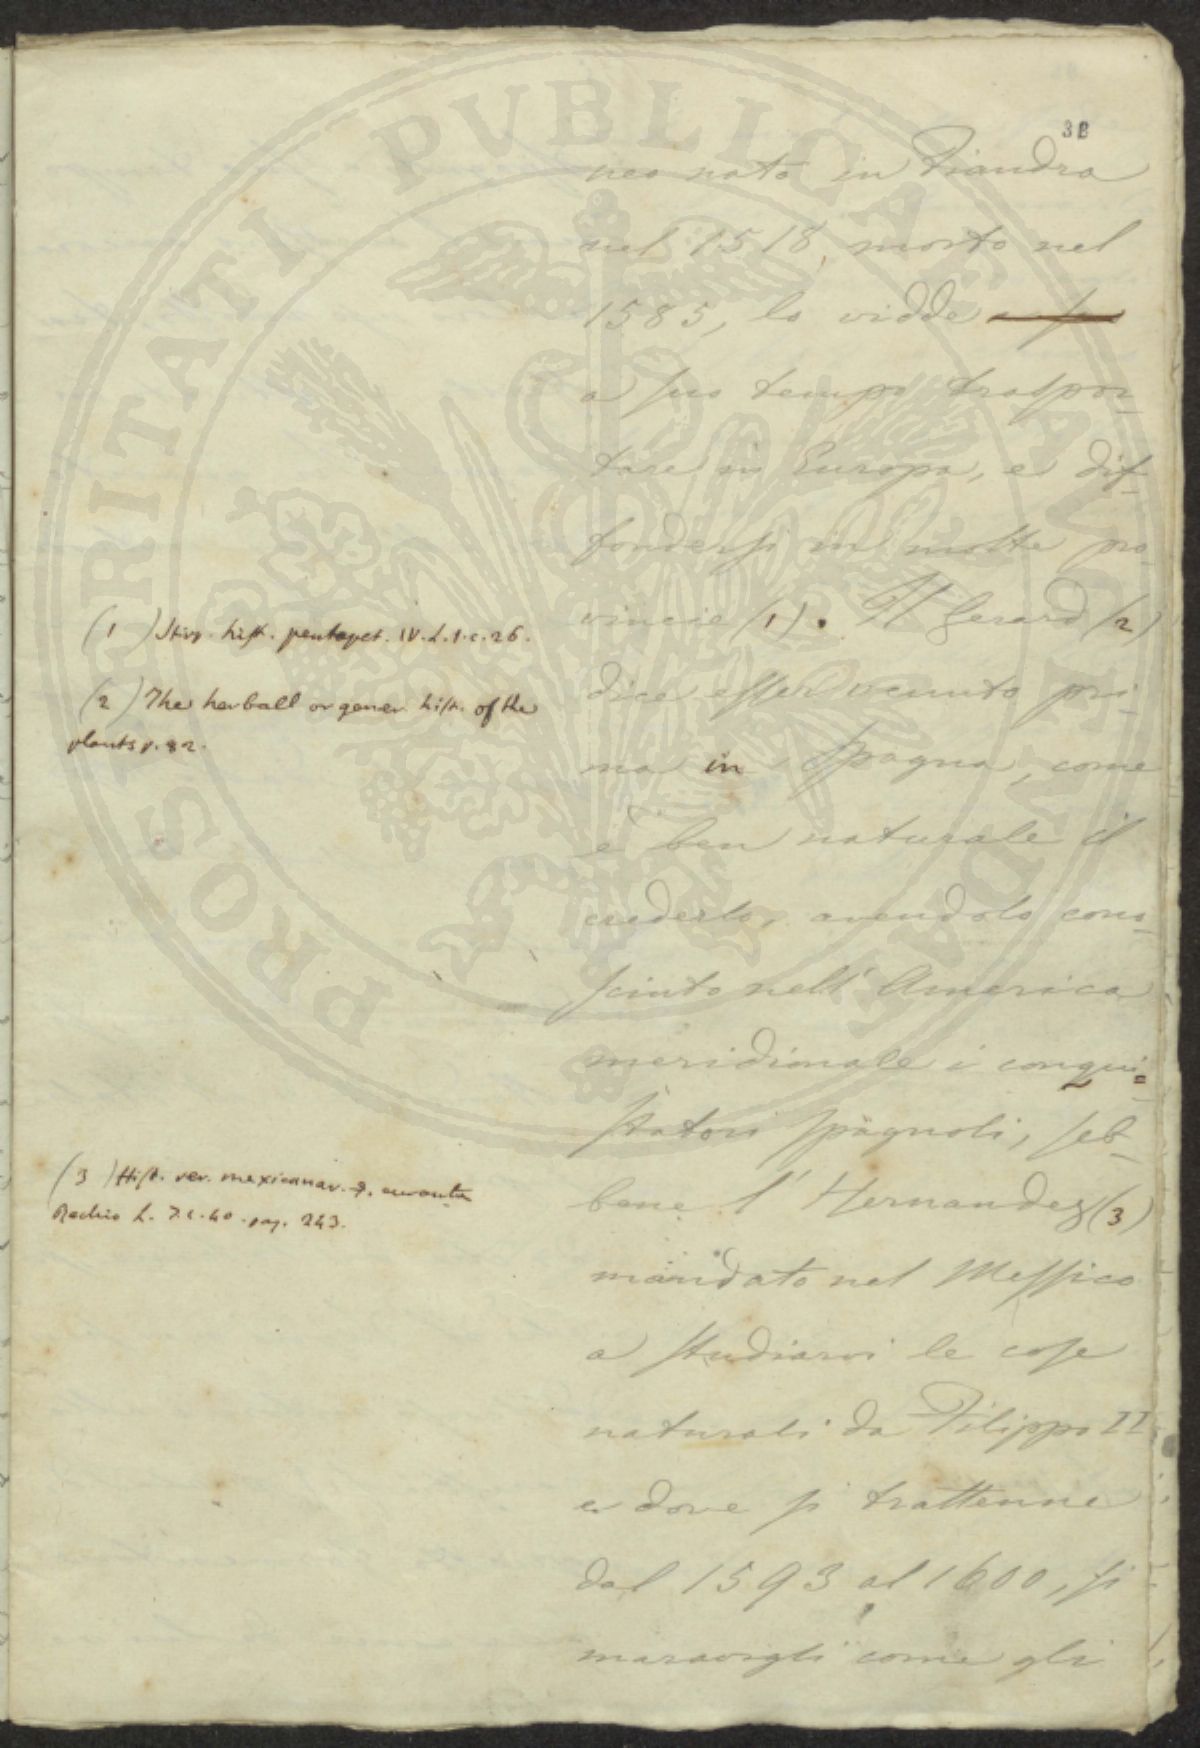 38
neo nato in Fiandra
nel 1518, morto nel
1585, lo vidde
a suo tempo traspor-
tare in Europa, e dif-
fondersi in molte pro
vincie (1). Il Gerard (2)
dice esser venuto pri-
ma in Spagna, come
è ben naturale il
crederlo, avendolo cono-
sciuto nell' America
meridionale i conqui=
statori spagnoli, seb-
bene l' Hernandez (3)
mandato nel Messico
a studiarvi le cose
naturali da Filippo II
e dove si trattenne
dal 1593 al 1600, si
maravigli come gli
(1) Stirp. hist. pemptapet. IV. L. 1. c. 26.
(2) The herball or gener. hist. of the
plants p. 82.
(3) Hist. rer. mexicanar.
Rechio L. 7. c. 40. pag. 243.
PROSPERITATI PUBLICAE AUGENDAE